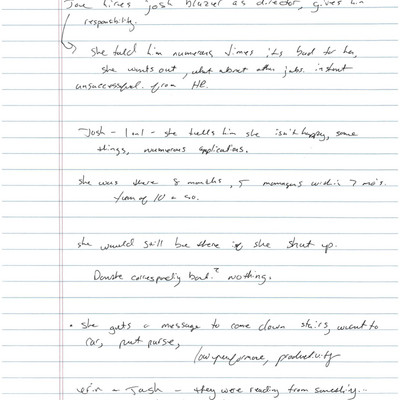 Joe hires Josh Blazer as director, gives him
responsibility.
she told him numerous times its bad for her,
she wants out, what about other jobs.
unsuccessful. from HR.
Josh - 1 on 1 - she tells him she isn't happy, same
things, numerous applications.
she was there 8 months, 5 managers within 7 mo's.
team of 10 or so.
she would still be there if she shut up.
correspondig back? nothing.
• she gets a message to come down stairs, went to
car, put purse,
low performance, productivity
Erin - Josh - they were reading from something.-